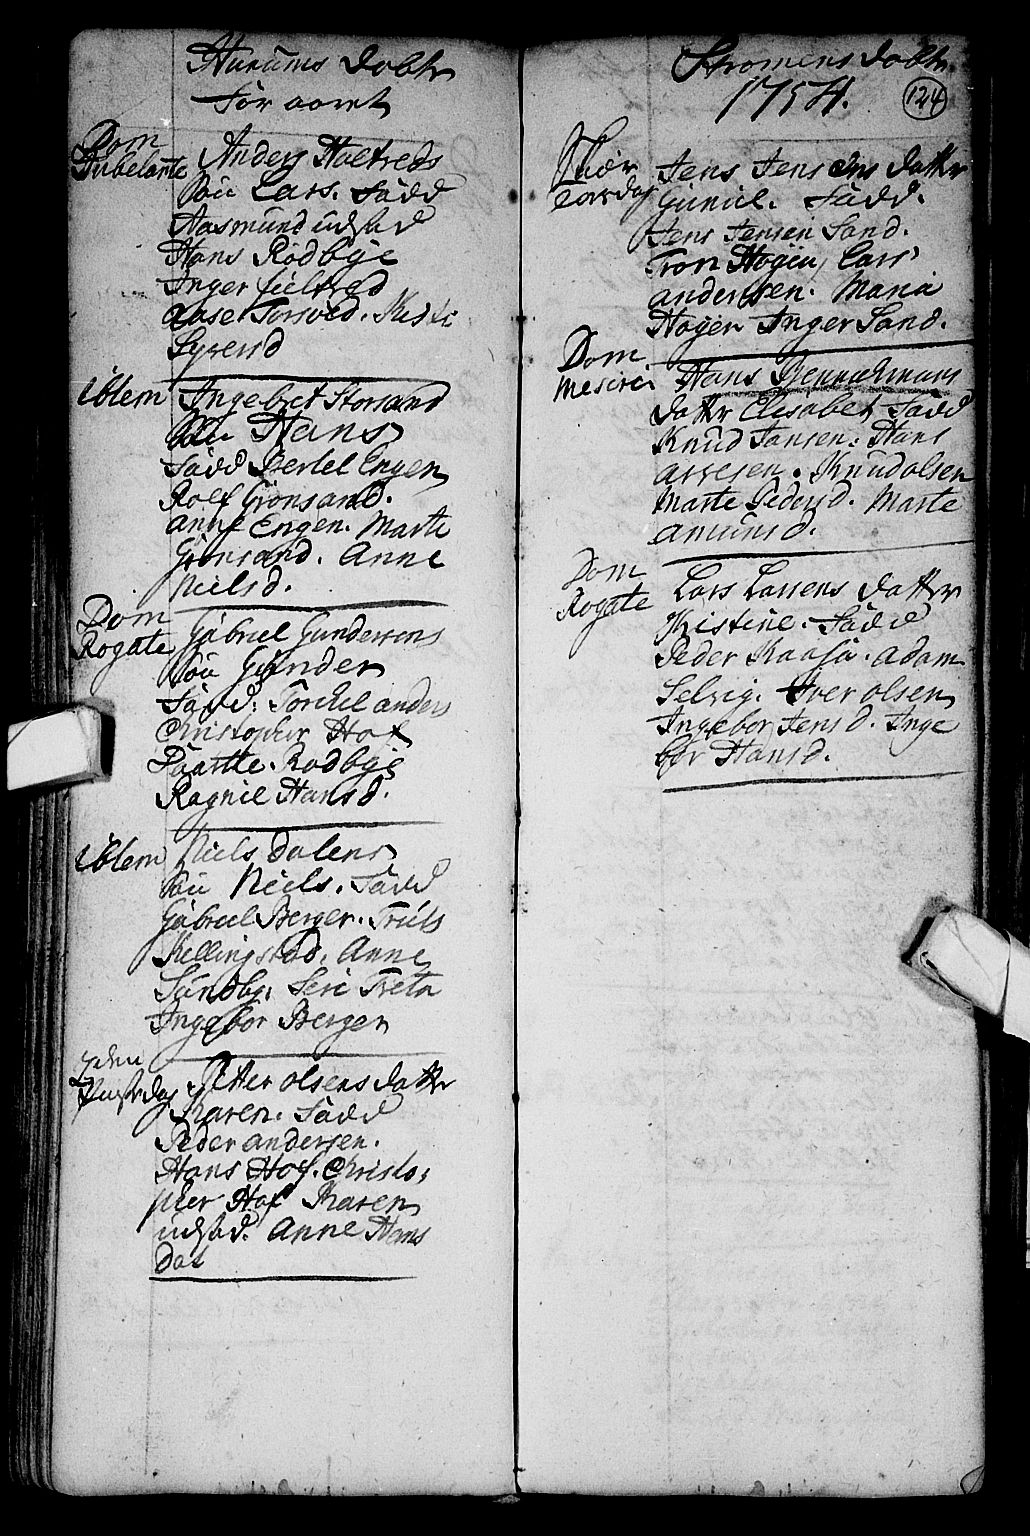 Hurums Döbte
för aaret
Dom Jubelante
Anders Holtveds
Søn Lars. Fadd
Aasmund udstad
Hans Rødbye
Inger
Aase Torsved. Kisti
Syversd
ibtem
Ingebret Storsand
Søn Hans
Fadd Bertel Engen
Rolf Grønsand.
anne Engen. Marte
Grønsand. Anne
Nielsd.
Dom Rogate
Gabriel Gundersens
Søn Gunder
Fadd: Torckel anders
Christopher Hof
Rødbye
Ragnil Hansd.
ibtem
Niels Dalens
Søn Niels. Fadd
Gabriel Berger. Truls
Kellingstad. Anne
Sundby. Seri Treta
Ingebor Berger
2den Pinstdag
Petter olsens datter
Karen. Fadd
Peder andersen.
Hans Hof. Christo:
pher Hof Karen
udstad. Anne Hans
Dat
Strømens Döbte
1754.
124
Skier torsdag
Jens Jensens datter
Guniel. Fadd.
Jens Jensen Sand.
Tron Hogen, Lars
andersen. Maria
Hogen Inger Sand.
Dom
Hans
datter Elisabet Fadd
Knud Jansen. Hans
Knud olsen
Marte Pedersd. Marte
amunsd.
Dom Rogate
Lars Larsens datter
Kristine. Fadd
Peder Kaasa. Adam
Selvig. Iver olsen
Ingebor Jensd. Inge
bor Hansd.